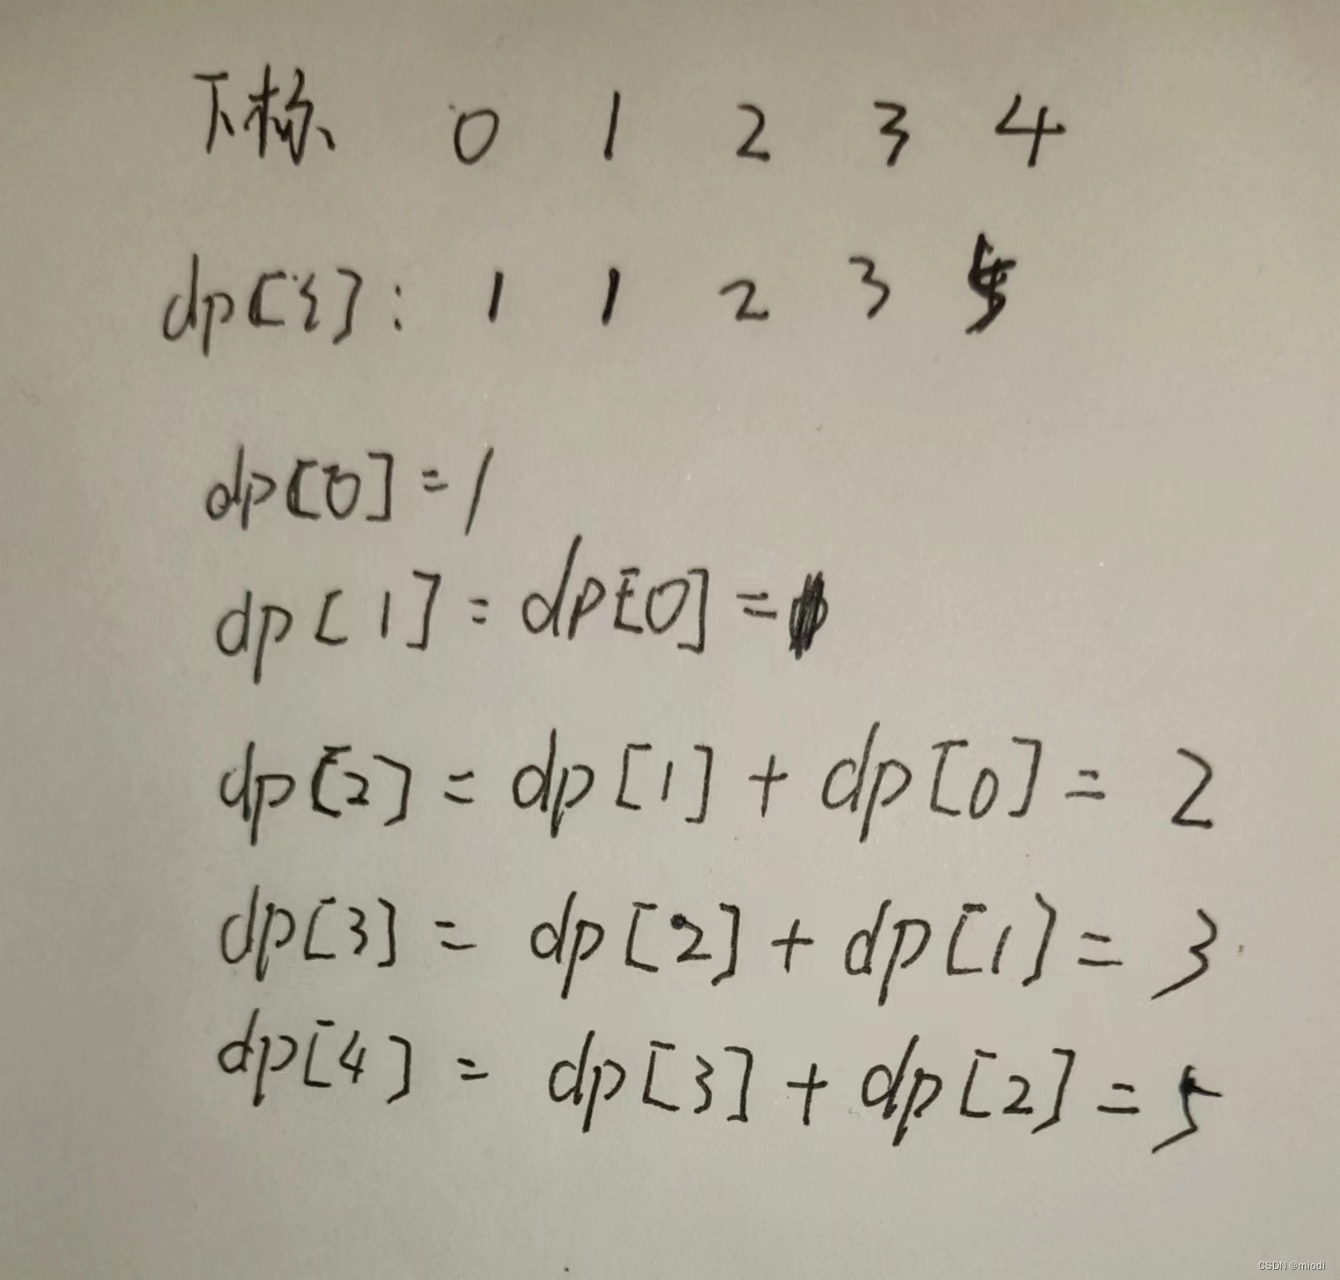 下标 0 1 2 3 4
dp[i]: 1 1 2 3 5
dp[0]=1
dp[1]=dp[0]=1
dp[2]=dp[1]+dp[0]=2
dp[3]=dp[2]+dp[1]=3
dp[4]=dp[3]+dp[2]=5
CSDN @miodi